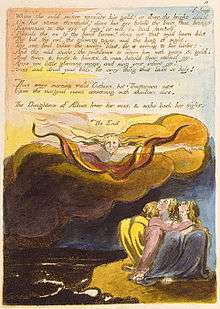 Where the cold miser spreads his gold? or does the bright cloud drop
On his stone threshold? does his eye behold the beam that brings
Expansion to the eye of pity? or will he bind himself
Beside the ox to thy hard furrow? does not that mild beam blot
The bat, the owl, the glowing tyger, and the king of night.
The sea fowl takes the wintry blast for a cov'ring to her limbs:
And the wild snake, the pestilence to adorn him with gems & gold.
And trees. & birds. & beasts. & men. behold their eternal joy.
Arise you little glancing wings, and sing your infant joy!
Arise and drink your bliss, for every thing that lives is holy!
Thus every morning wails Oothoon. but Theotormon sits
Upon the margind ocean conversing with shadows dire.
The Daughters of Albion hear her woes, & eccho back her sighs.
The End